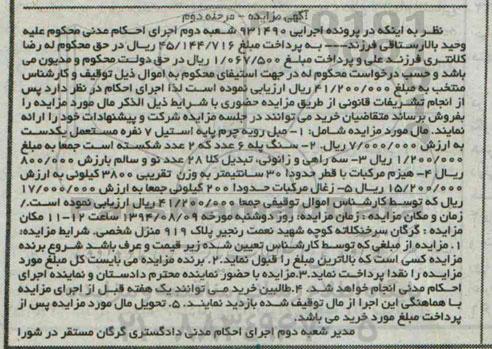 آگهی مزایده - مرحله دوم
نظر به اینکه در پرونده اجرایی ۹۳۱۴۹۰ شعبه دوم اجرای احکام مدنی محکوم علیه
وحید بالارستاقی فرزند--- به پرداخت مبلغ ۴۵/۱۴۴/۷۱۶ ریال در حق محکوم له رضا
کلانتری فرزند علی و پرداخت مبلغ ۱/۰۶۷/۵۰۰ ریال در حق دولت محکوم و مدیون می
باشد و حسب درخواست محکوم له در جهت استیفای محکوم به اموال ذیل توقیف و کارشناس
منتخب به مبلغ ۴۱/۲۰۰/۰۰۰ ریال ارزیابی نموده است لذا اجرای احکام در نظر دارد پس
از انجام تشریفات قانونی از طریق مزایده حضوری با شرایط ذیل الذکر مال مورد مزایده را
بفروش برساند متقاضیان خرید می توانند در جلسه مزایده شرکت و پیشنهادات خود را ارائه
نمایند. مال مورد مزایده شامل: ۱- مبل رویه چرم پایه استیل ۷ نفره مستعمل یکدست
به ارزش ۷/۰۰۰/۰۰۰ ریال. ۲- سنگ پله ۶ عدد که ۲ عدد شکسته است جمعا به مبلغ
۱/۲۰۰/۰۰۰ ریال ۳- سه راهی و زانوئی، تبدیل کلا ۲۸ عدد نو و سالم بارزش ۸۰۰/۰۰۰
ریال ۴- هیزم مرکبات با قطر حدودا ۳۰ سانتیمتر به وزن تقریبی ۳۸۰۰ کیلوئی به ارزش
۱۵/۲۰۰/۰۰۰ ریال ۵- زغال مرکبات حدودا ۲۰۰ کیلوئی جمعا به ارزش ۱۷/۰۰۰/۰۰۰
ریال که توسط کارشناس اموال توقیفی جمعا ۴۱/۲۰۰/۰۰۰ ریال ارزیابی نموده است./
زمان و مکان مزایده: زمان مزایده: روز دوشنبه مورخه ۱۳۹۴/۰۸/۰۹ ساعت ۱۲-۱۱ مکان
مزایده: گرگان سرخنکلاته کوچه شهید نعمت رنجبر پلاک ۹۱۹ منزل شخصی. شرایط مزایده:
۱. مزایده از مبلغی که توسط کارشناس تعیین شده زیر قیمت و عرف باشد شروع برنده
مزایده کسی است که بالاترین مبلغ را قبول نماید. ۲. برنده مزایده می بایست کل مبلغ مورد
مزایده را نقدا پرداخت نماید. ۳. مزایده با حضور نماینده محترم دادستان و نماینده اجرای
احکام مدنی انجام خواهد شد. ۴. طالبین خرید می توانند یک هفته قبل از اجرای مزایده
با هماهنگی این اجرا از مال توقیف شده بازدید نمایند. ۵. تحویل مال مورد مزایده پس از
پرداخت مبلغ مورد خرید می باشد.
مدیر شعبه دوم اجرای احکام مدنی دادگستری گرگان مستقر در شورا